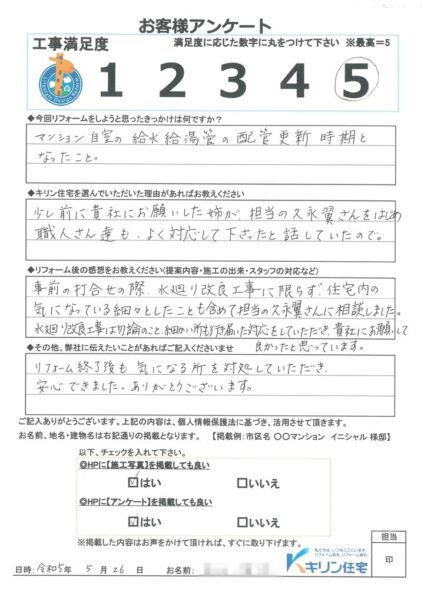 お客様アンケート
工事満足度
満足度に応じた数字に丸をつけて下さい ※最高=5
1 2 3 4 5
◆今回リフォームをしようと思ったきっかけは何ですか?
マンション自室の給水給湯管の配管更新時期と
なったこと。
◆キリン住宅を選んでいただいた理由があればお教えください
少し前に貴社にお願いした姉が、担当の久永翼さんをはじめ
職人さん達も、よく対応して下さったと話していたので。
◆リフォーム後の感想をお教えください(提案内容・施工の出来・スタッフの対応など)
事前の打合せの際、水廻り改良工事に限らず、住宅内の
気になっている細々としたことも含めて担当の久永翼さんに相談しました。
水廻り改良工事は勿論のこと、細かい所も行き届いた対応をしていただき、貴社にお願いして
良かったと思っています。
◆その他、弊社に伝えたいことがあればご記入くださいませ
リフォーム終了後も気になる所を対処していただき、
安心できました。ありがとうございます。
ご記入ありがとうございます。上記の内容は、個人情報保護法に基づき、活用させて頂きます。
お名前、地名・建物名は右記通りの掲載となります。 【掲載例:市区名 〇〇マンション イニシャル 様邸】
以下、チェックを入れて下さい。
◎HPに【施工写真】を掲載しても良い
☑はい □いいえ
◎HPに【アンケート】を掲載しても良い
☑はい □いいえ
※掲載した内容はお声をかけて頂ければ、すぐに取り下げます。
キリン住宅
担当
印
日時: 令和5年 5月 26日 お名前: